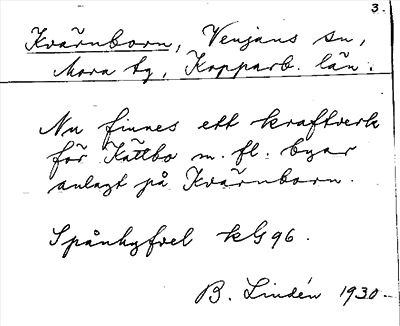 3.
Kvärnborn, Venjans sn,
Mora tg, Kopparb. län.
Nu finnes ett kraftverk
för Kättbo m. fl. byar
anlagt på Kvärnborn.
Spånhyfvel kls 96.
B. Lindén 1930.